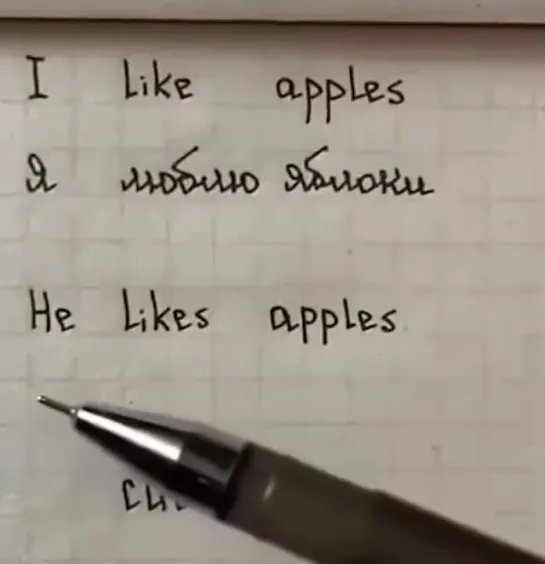 I like apples
Я люблю яблоки
He likes apples